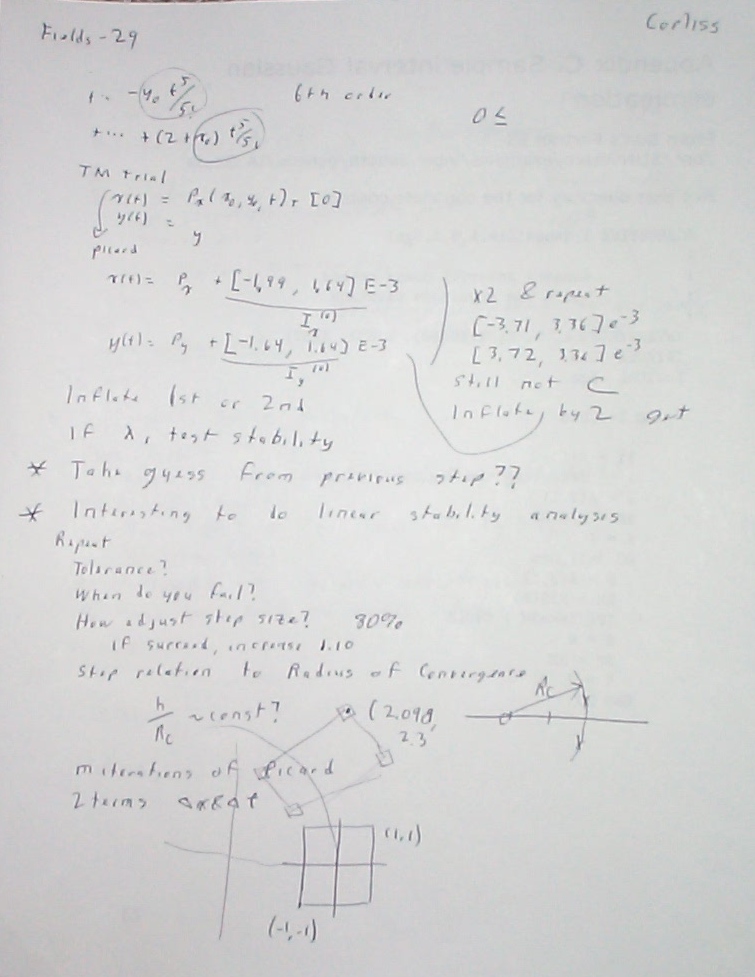 Fields - 29
Corliss
+ ... - y₀ t⁵/5! 6th order
0 ≤
+ ... + (2 + x₀) t⁵/5!
TM trial
x(t) = Pₓ(x₀, y₀, t) + [0]
y(t) = y
Picard
x(t) = Pₓ + [-1.99, 1.64] E-3
Iₓ⁽⁰⁾
y(t) = P_y + [-1.64, 1.64] E-3
I_y⁽⁰⁾
x2 & repeat
[-3.71, 3.36] e⁻³
[3.72, 3.36] e⁻³
still not ⊂
Inflate, by 2 get
Inflate 1st or 2nd
If λ, test stability
* Take guess from previous step??
* Interesting to do linear stability analyses
Repeat
Tolerance?
When do you fail?
How adjust step size? 80%
If succeed, increase 1.10
Step relation to Radius of Convergence
h/R_c ~ const?
(2.098,
2.3
R_c
m iterations of Picard
2 terms Δx & Δt
(1,1)
(-1,-1)